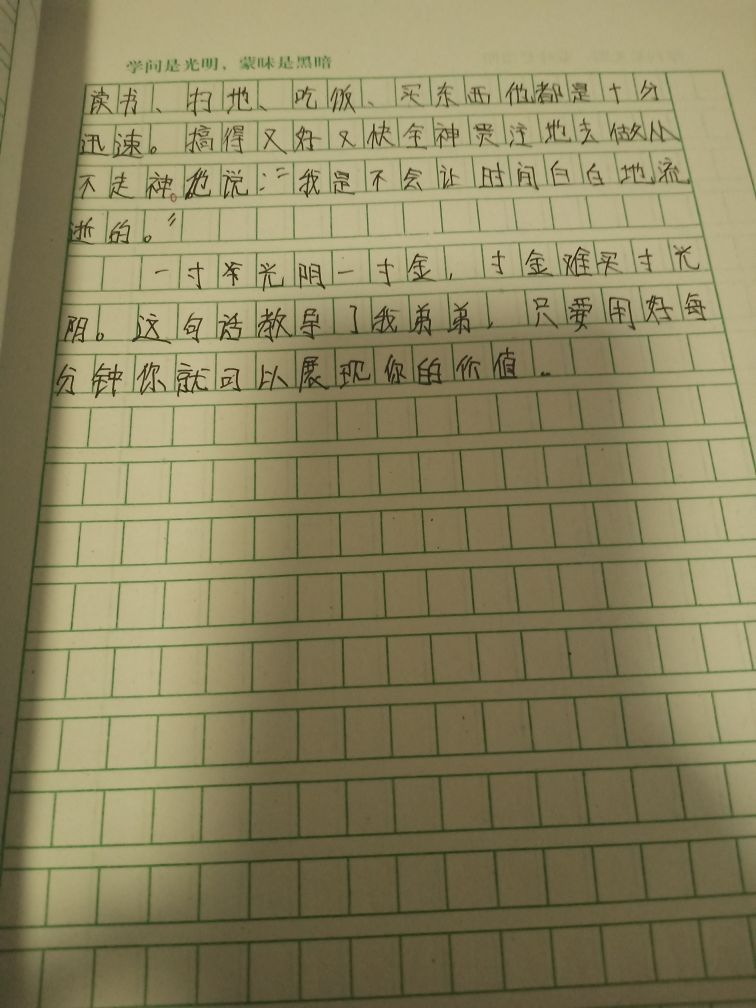 学问是光明，蒙昧是黑暗
读书、扫地、吃饭、买东西他都是十分
迅速。搞得又好又快全神贯注地去做从
不走神。他说：“我是不会让时间白白地流
逝的。”
一寸光阴一寸金，寸金难买寸光
阴。这句话教导了我弟弟，只要用好每
分钟你就可以展现你的价值。